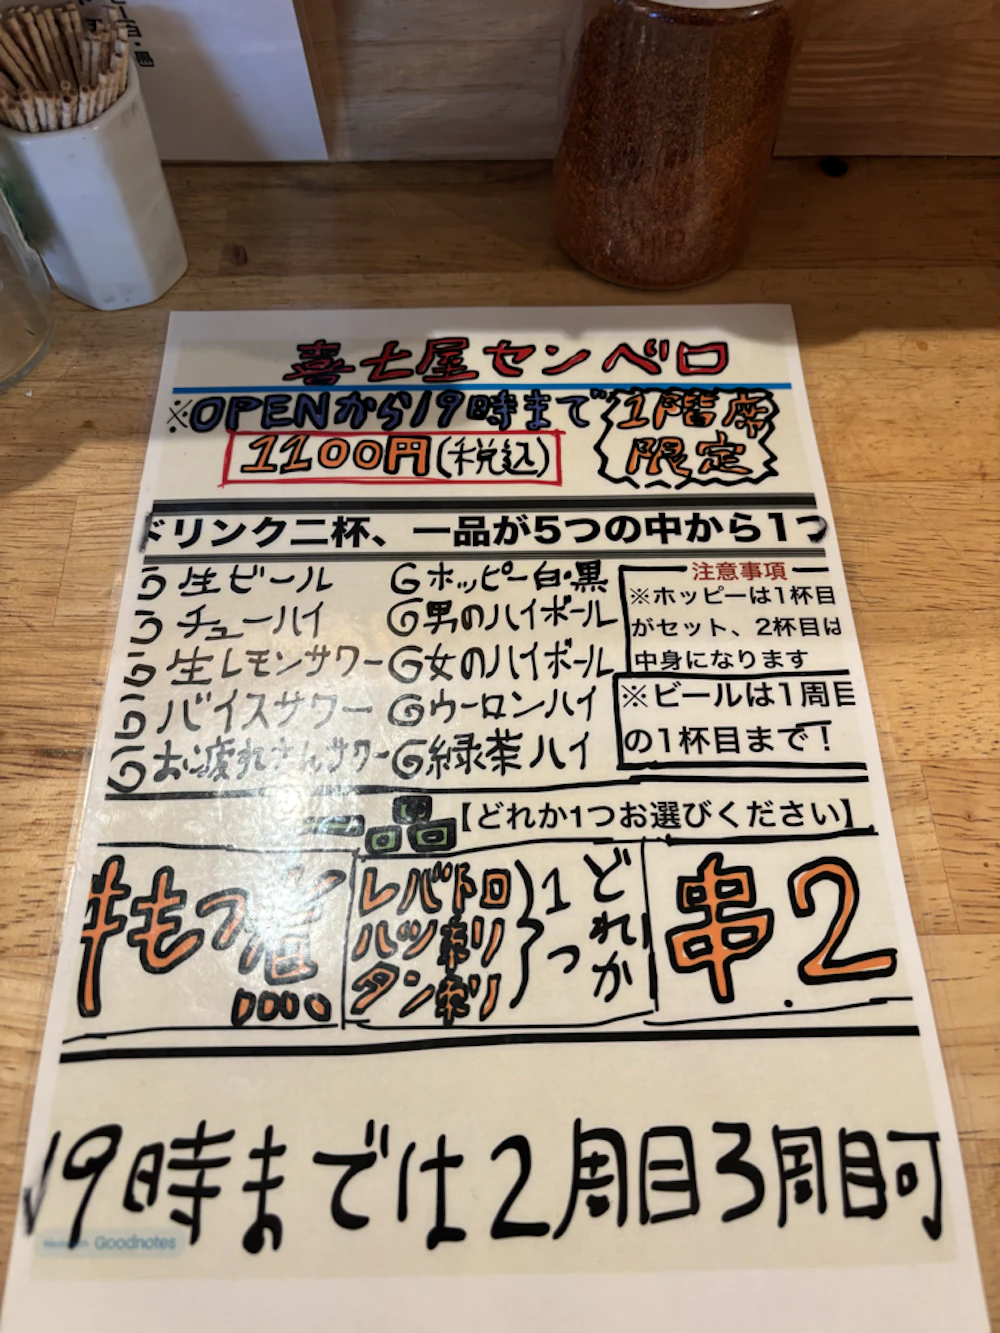 喜七屋センベロ
※OPENから19時まで
1階席
限定
1100円(税込)
ドリンク二杯、一品が5つの中から1つ
生ビール
チューハイ
生レモンサワー
バイスサワー
お疲れさんサワー
ホッピー白・黒
男のハイボール
女のハイボール
ウーロンハイ
緑茶ハイ
注意事項
※ホッピーは1杯目
がセット、2杯目は
中身になります
※ビールは1周目
の1杯目まで!
一品
【どれか1つお選びください】
牛もつ煮
レバトロ
ハツ刺
タン刺
どれか
1つ
串2
19時までは2周目3周目可
Goodnotes